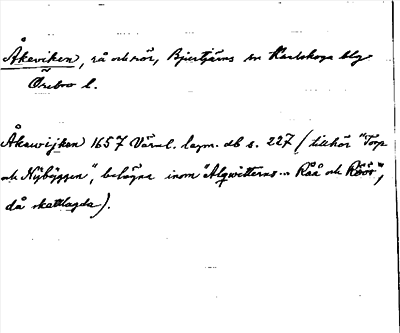 Åkaviken, rå och rör, Bjurtjärns sn Karlskoga blg
Örebro l.
Åkawijken 1657 Värml. lagm. db s. 227 (tillhör "Torp
och Nybÿggen", belägna inom "Alqwitterns.. Råå och Röör",
då skattlagda).